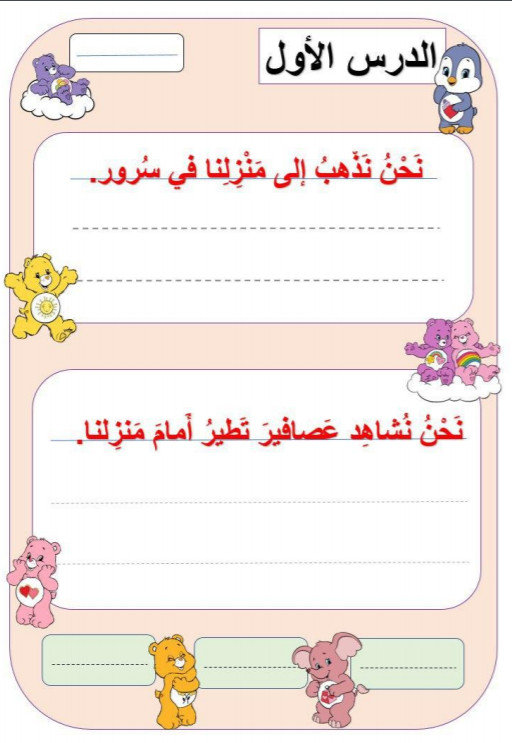 الدرس الأول
نَحْنُ نَذّهبُ إلى مَنْزِلِنا في سُرور.
نَحْنُ نُشاهِد عَصافيرَ تَطيرُ أَمامَ مَنزِلنا.